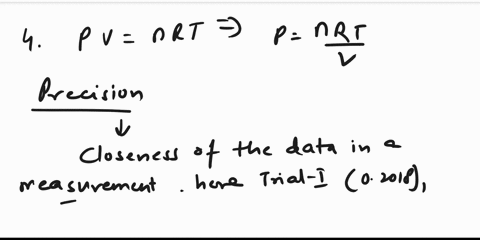 4. PV = nRT ⇒ P = nRT/V
Precision
↓
Closeness of the data in a
measurement. here Trial-I (0.2018),